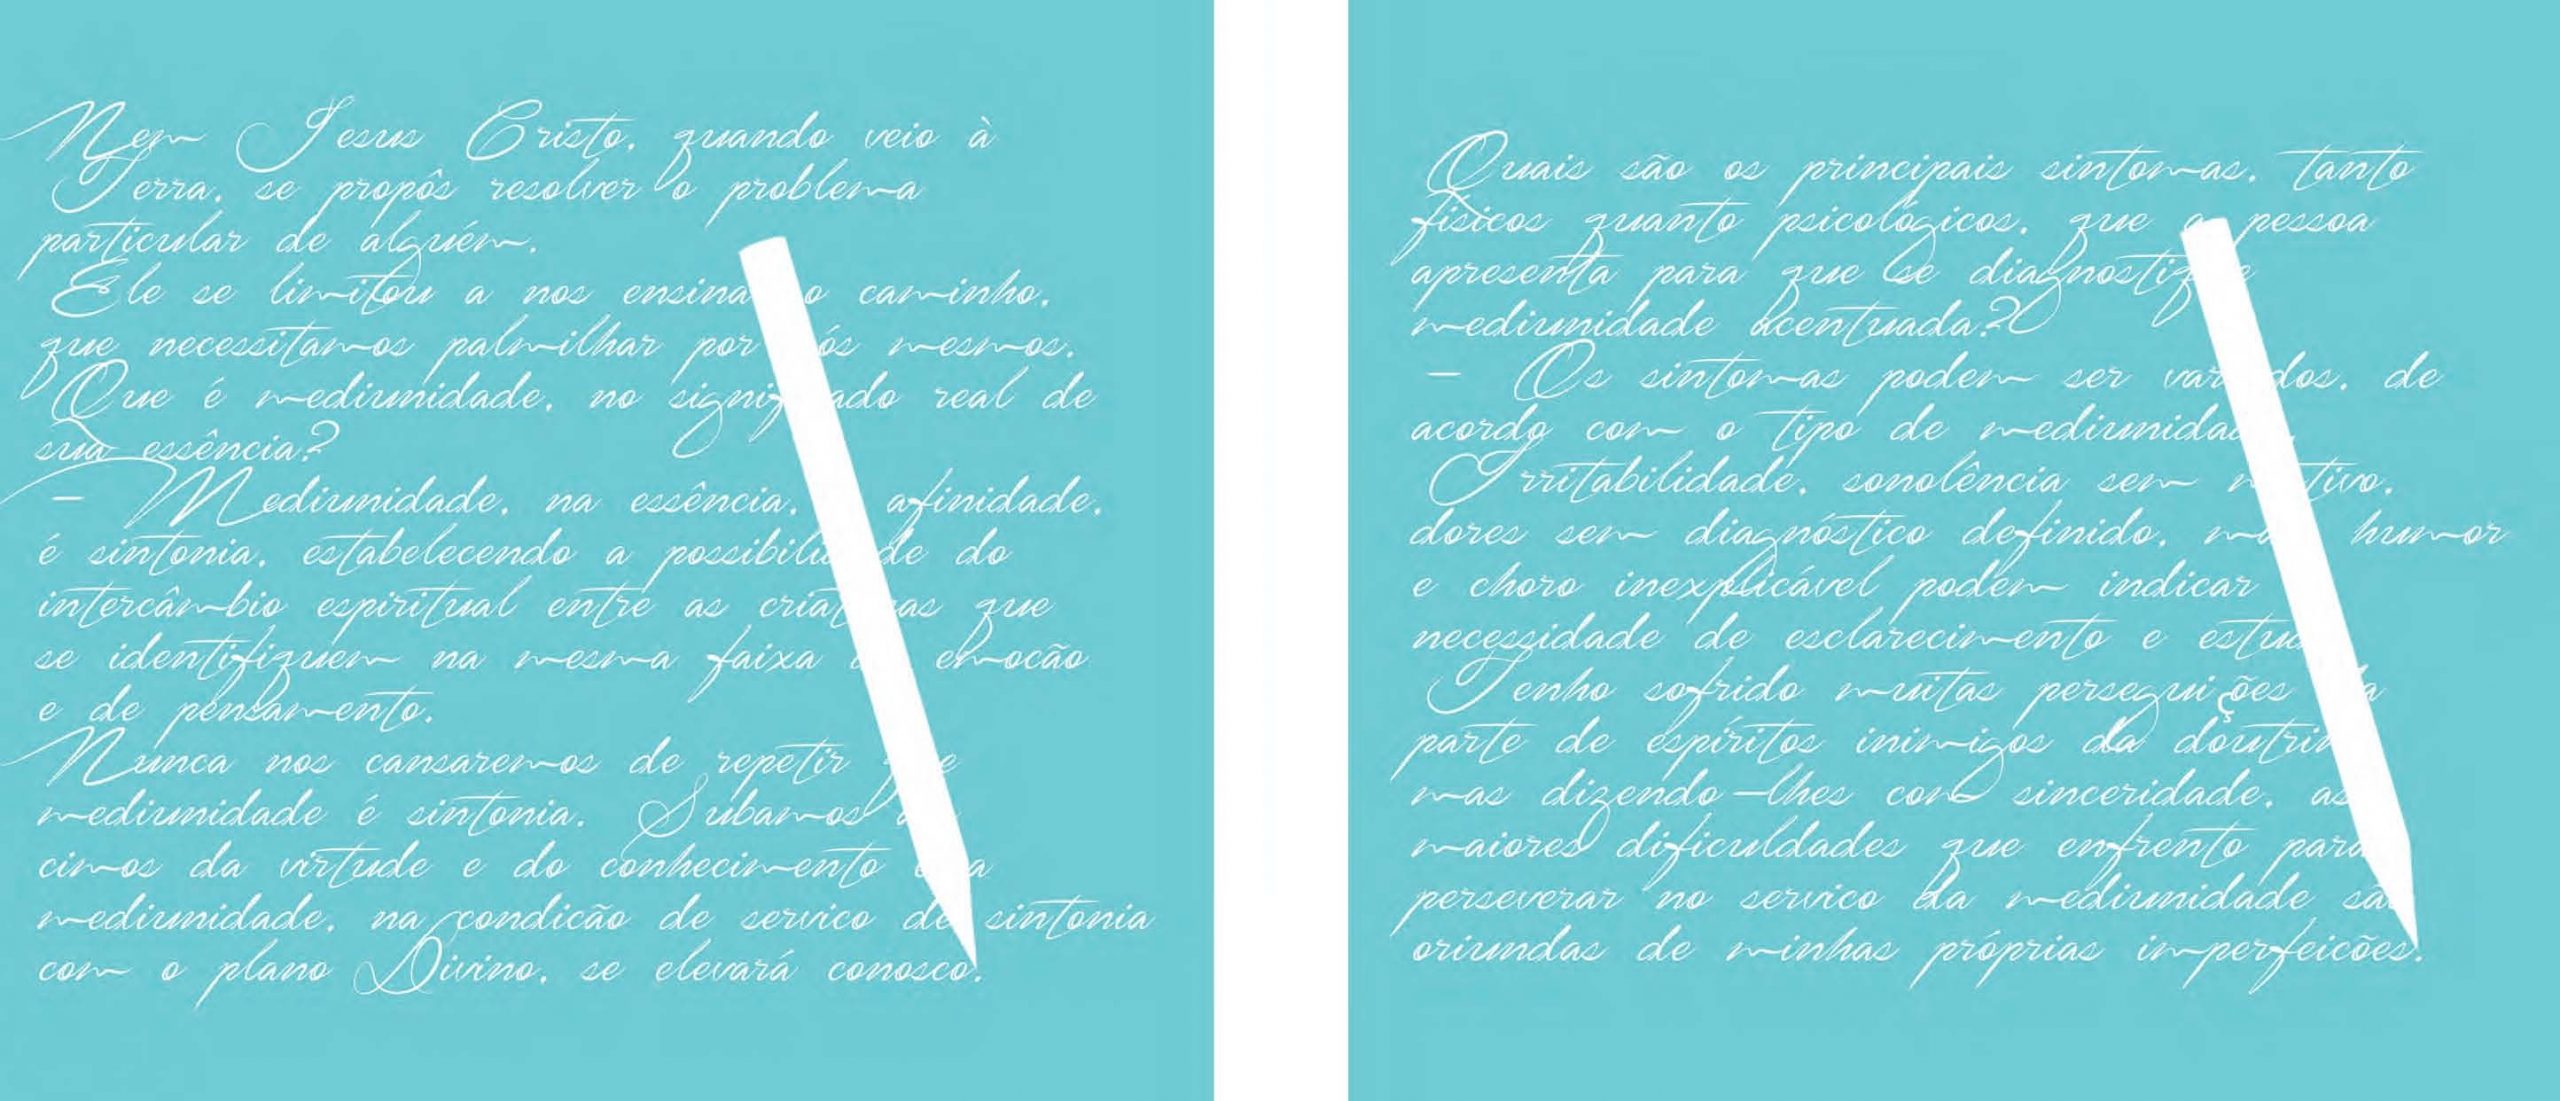 Nem Jesus Cristo, quando veio à
Terra, se propôs resolver o problema
particular de alguém.
Ele se limitou a nos ensina o caminho,
que necessitamos palmilhar por ós mesmos.
Que é mediunidade, no signif ado real de
sua essência?
– Mediunidade, na essência, afinidade,
é sintonia, estabelecendo a possibili de do
intercâmbio espiritual entre as criat as que
se identifiquem na mesma faixa emocão
e de pensamento.
Nunca nos cansaremos de repetir e
mediunidade é sintonia. Subamos
cimos da virtude e do conhecimento e a
mediunidade, na condicão de servico de sintonia
com o plano Divino, se elevará conosco.
Quais são os principais sintomas, tanto
físicos quanto psicológicos, que a pessoa
apresenta para que se diagnostiq e
mediunidade acentuada?
– Os sintomas podem ser var dos, de
acordo com o tipo de mediunida .
Irritabilidade, sonolência sem m tivo,
dores sem diagnóstico definido, ma humor
e choro inexplicável podem indicar
necessidade de esclarecimento e estu
Tenho sofrido muitas perseguições a
parte de espíritos inimigos da doutrin
mas dizendo-lhes com sinceridade, as
maiores dificuldades que enfrento para
perseverar no servico da mediunidade sã
oriundas de minhas próprias imperfeicões.